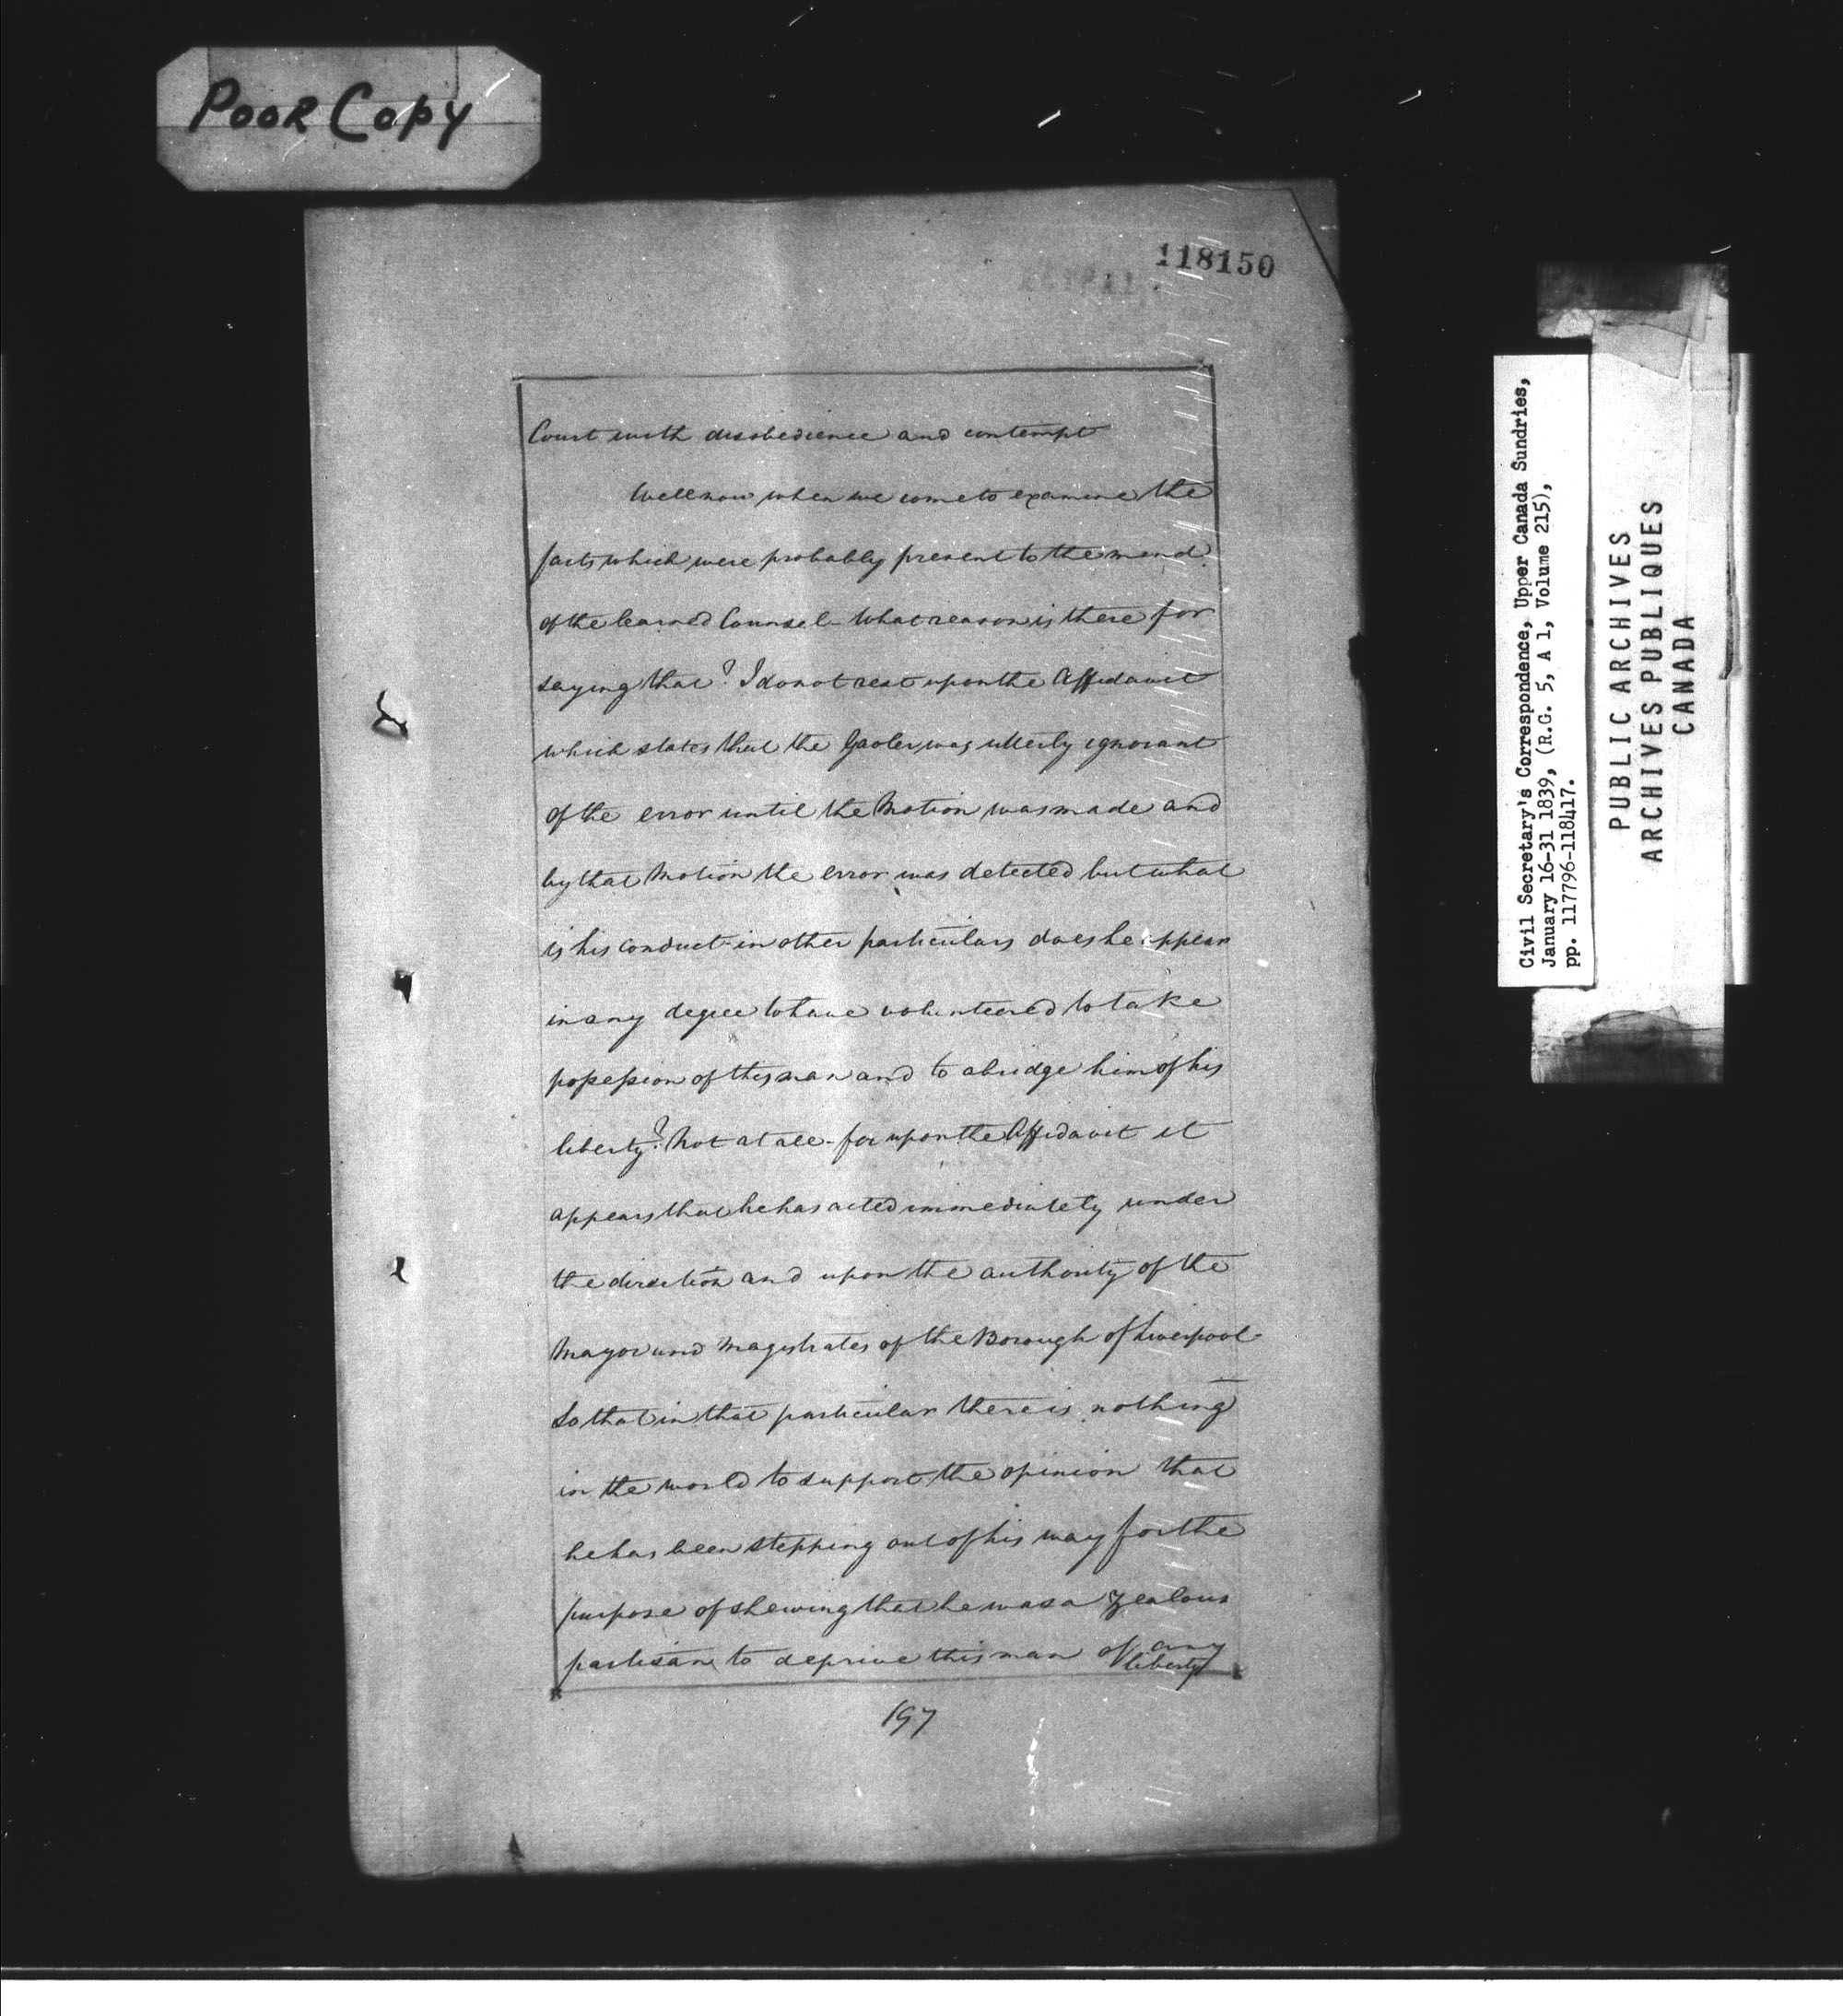 POOR COPY
118150
Court with disobedience and contempt
Well now when we come to examine the
facts which were probably present to the mind
of the learned Counsel - What reason is there for
saying that? I do not rest upon the Affidavit
which states that the Gaoler was utterly ignorant
of the error until the Motion was made and
by that Motion the error was detected but what
is his conduct in other particulars does he appear
in any degree to have volunteered to take
possession of this man and to abridge him of his
liberty? Not at all - for upon the Affidavit it
appears that he has acted immediately under
the direction and upon the authority of the
Mayor and Magistrates of the Borough of Liverpool -
So that in that particular there is nothing
in the world to support the opinion that
he has been stepping out of his way for the
purpose of shewing that he was a zealous
partisan to deprive this man of any
liberty
197
Civil Secretary's Correspondence, Upper Canada Sundries,
January 16-31 1839, (R.G. 5, A 1, Volume 215),
pp. 117796-118417.
PUBLIC ARCHIVES
ARCHIVES PUBLIQUES
CANADA